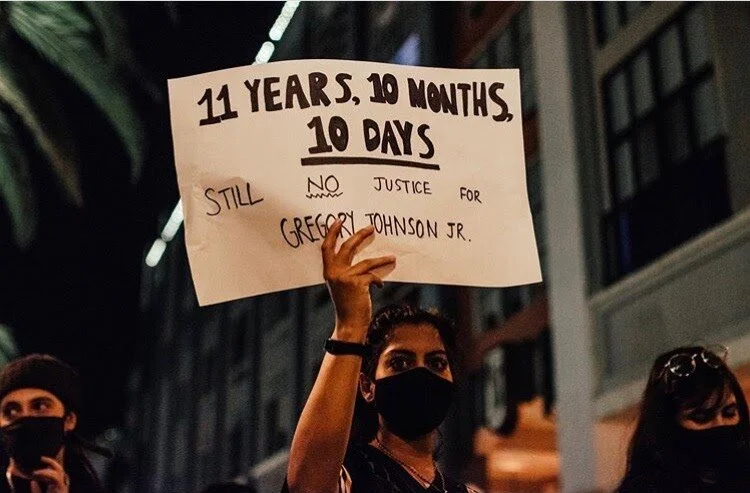 11 YEARS, 10 MONTHS,
10 DAYS
STILL NO JUSTICE FOR
GREGORY JOHNSON JR.